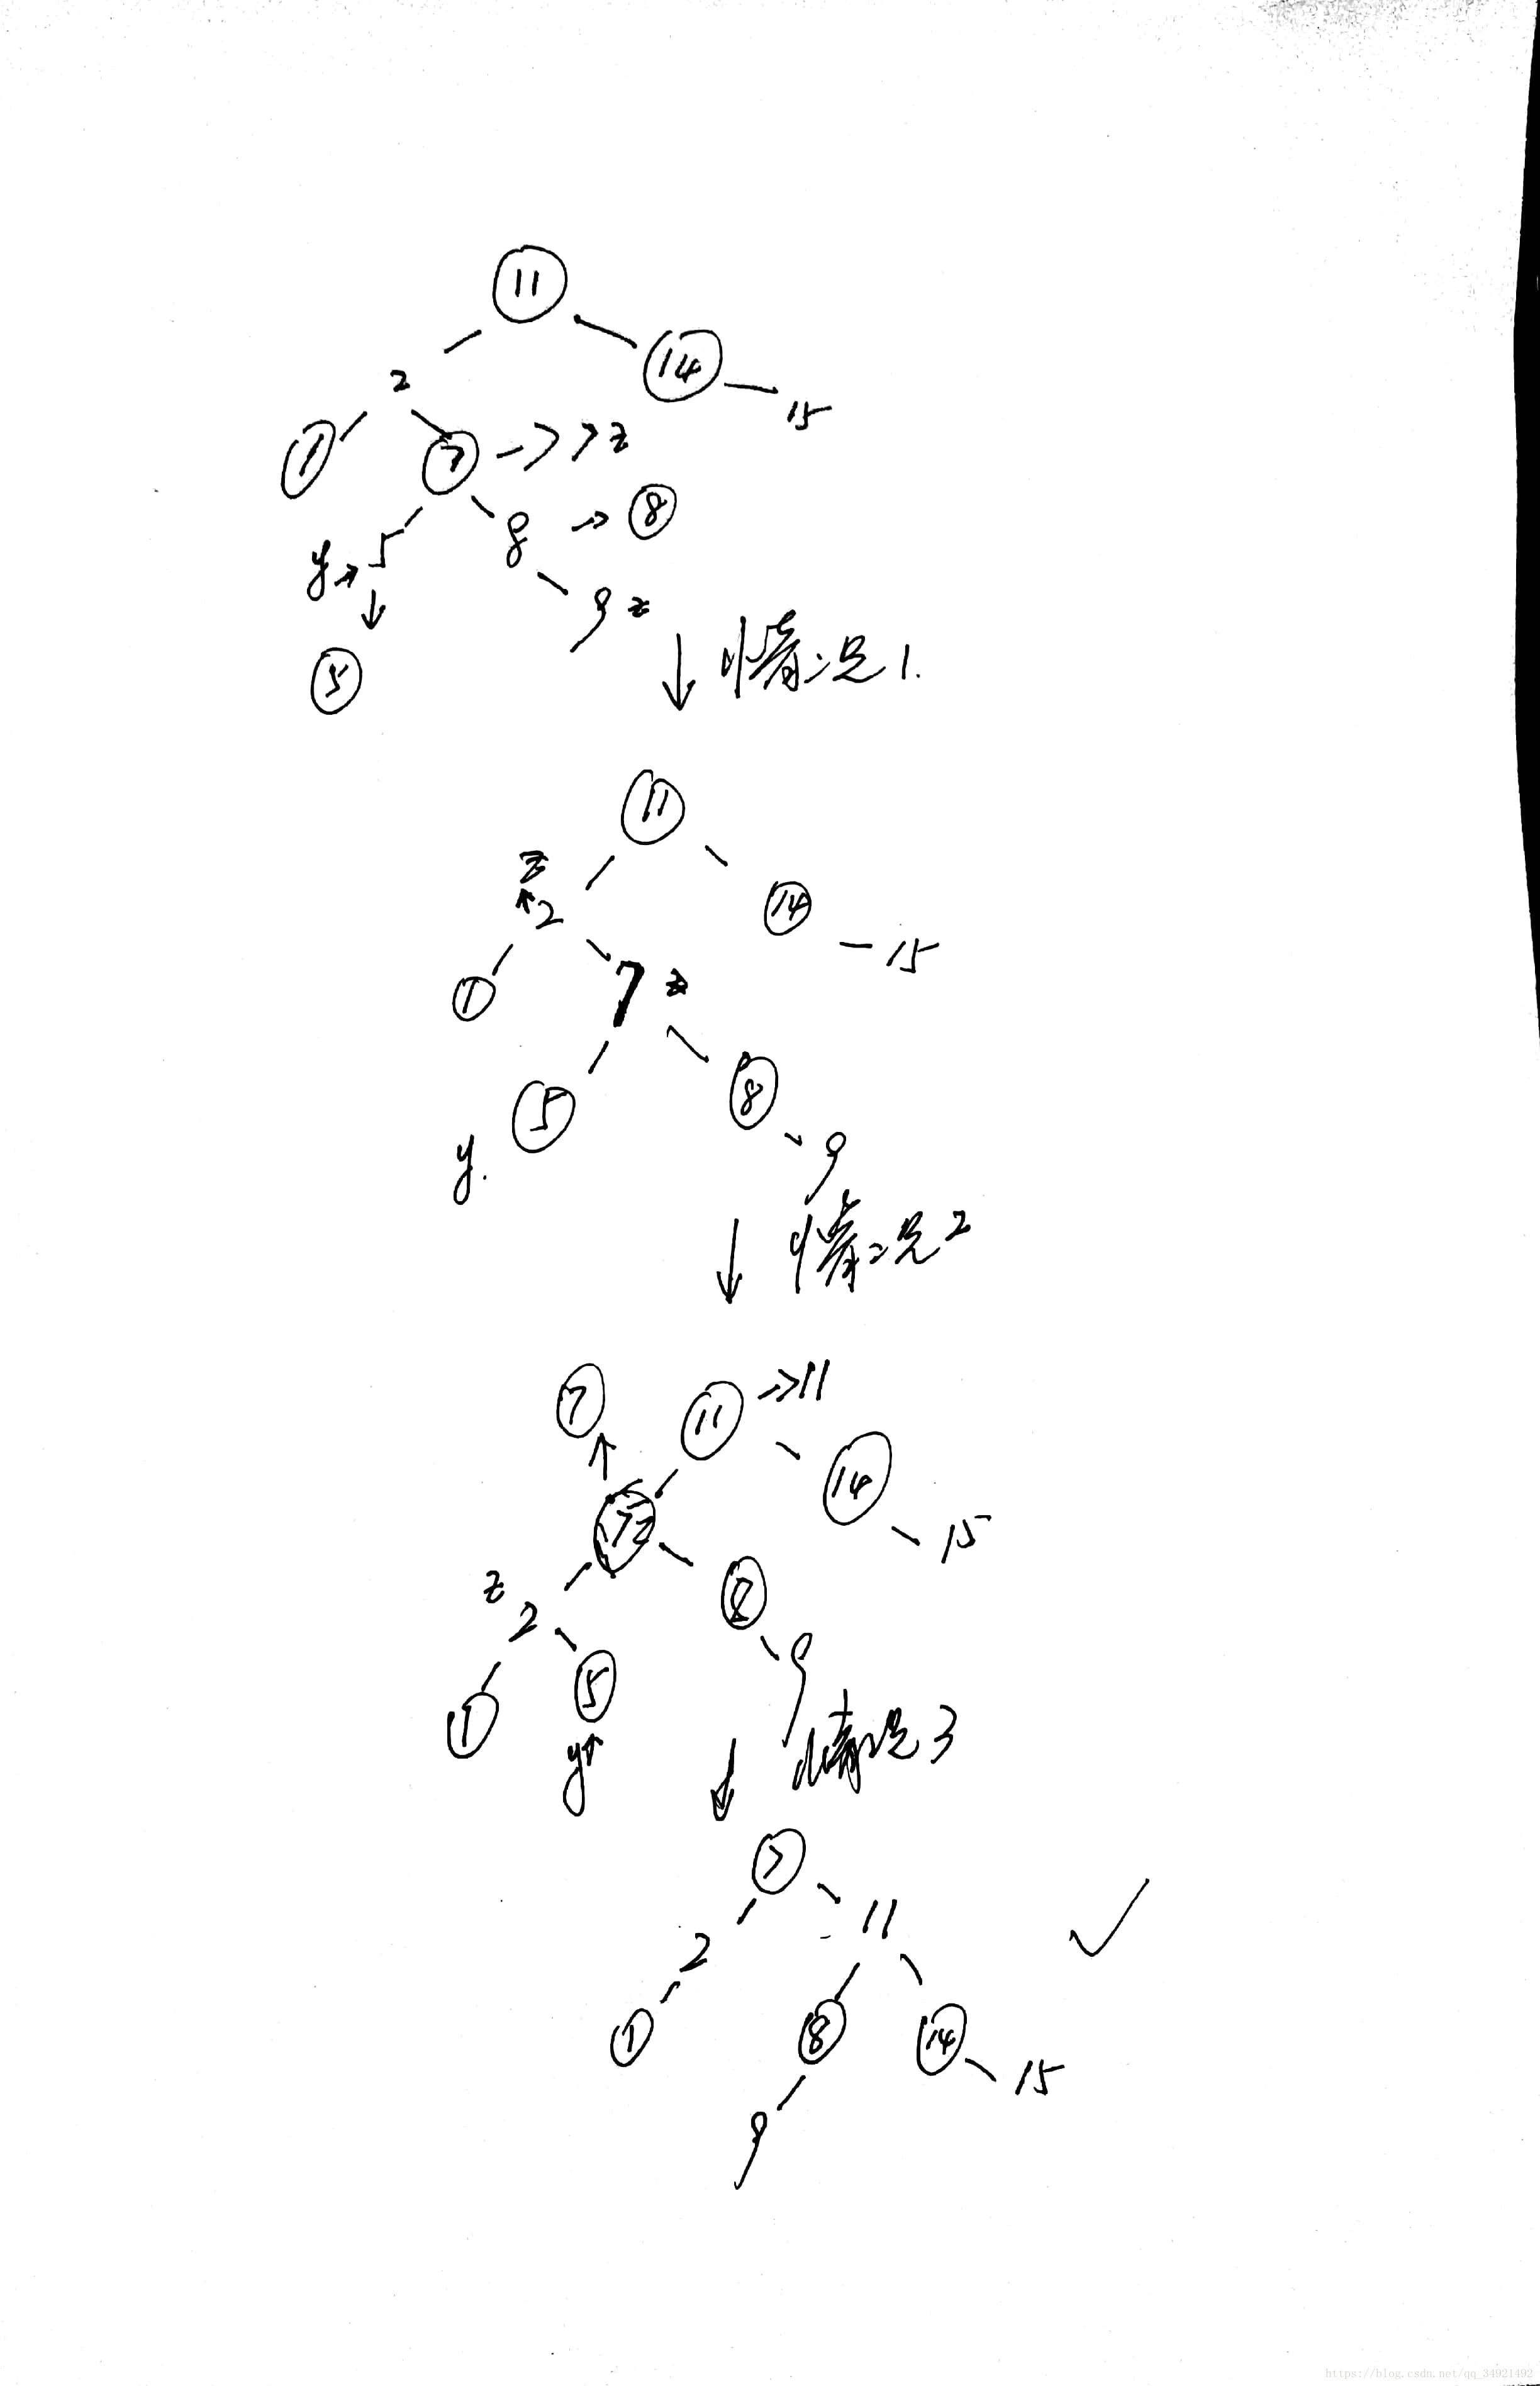 11
2
14
15
1
7 → 7 z
5
8 → 8
y →
9 z
↓
5
↓ 情况1.
11
z
↑
2
14
15
1
7 z
5
8
y.
9
↓ 情况2
7
11 → 11
↑
14
7z
15
z
2
8
1
5
9
y
↓ 情况3
7
2
11
1
8
14
15
9
https://blog.csdn.net/qq_34921492